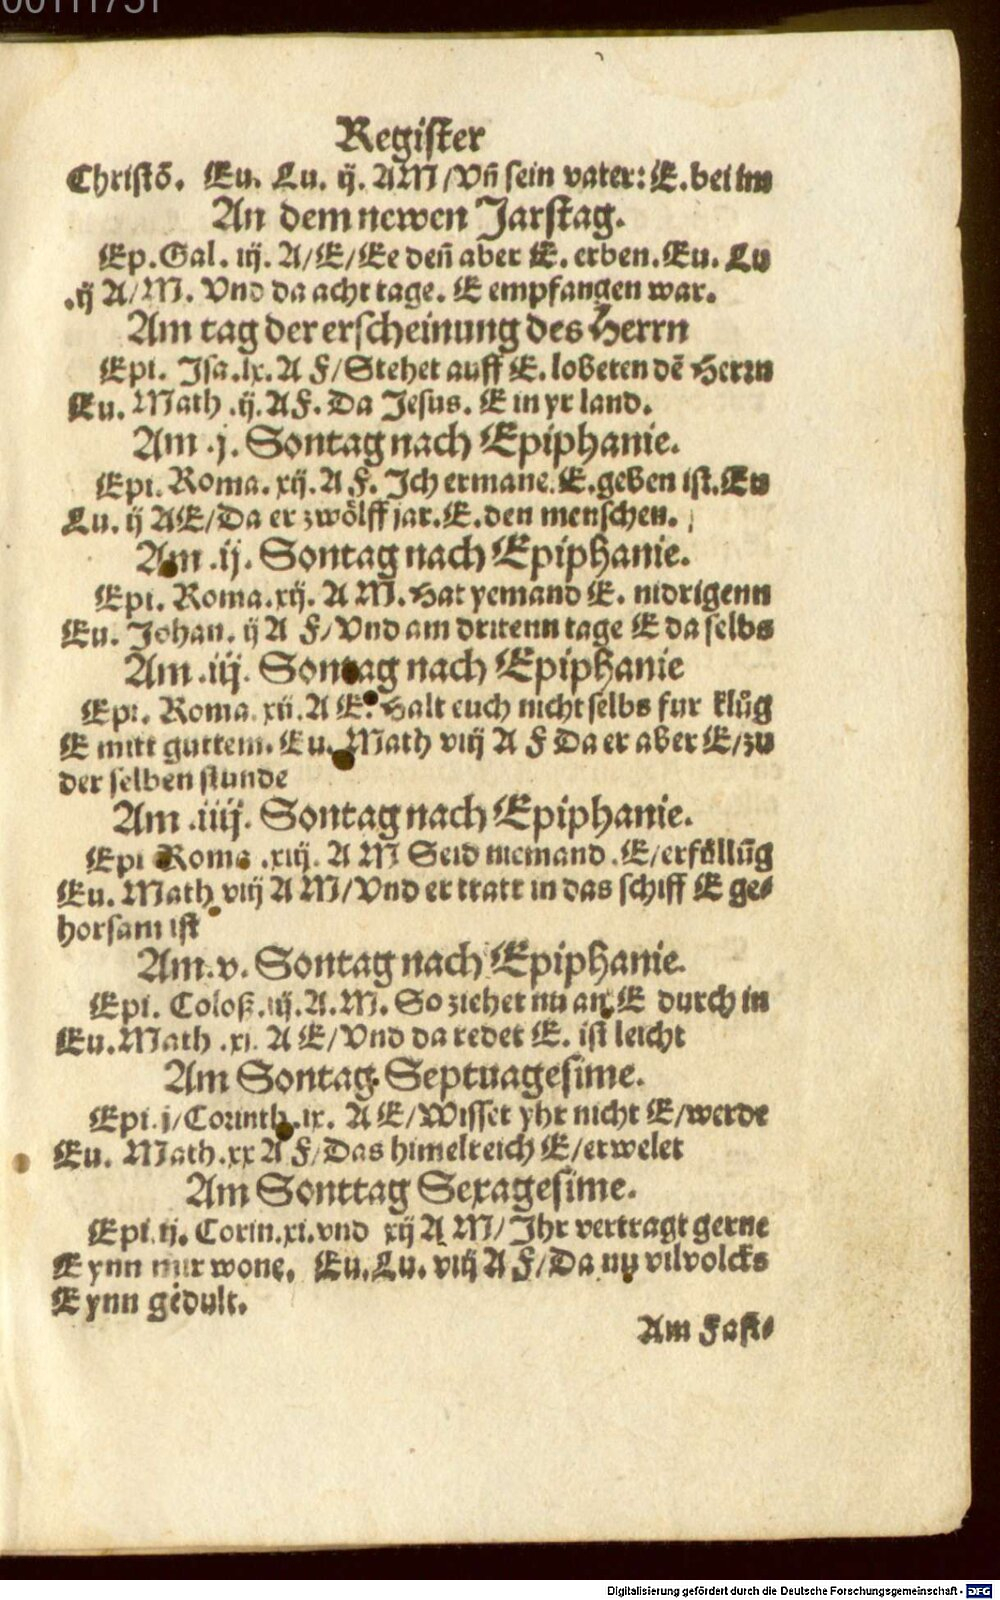 00111751
Register
Christō. Eu. Lu. ij. A M/Vñ sein vater: E. bei im
An dem newen Jarstag.
Ep. Gal. iij. A/E/Ee deñ aber E. erben. Eu. Lu
.ij A/M. Vnd da acht tage. E empfangen war.
Am tag der erscheinung des Herrn
Epi. Isa. lx. A F/Stehet auff E. lobeten dē Herrn
Eu. Math .ij. A F. Da Jesus. E in yr land.
Am .j. Sontag nach Epiphanie.
Epi. Roma. xij. A F. Ich ermane. E. geben ist. Eu
Lu. ij A E/Da er zwölff jar. E. den menschen.
Am .ij. Sontag nach Epiphanie.
Epi. Roma. xij. A M. Hat yemand E. nidrigenn
Eu. Johan. ij A F/Vnd am dritenn tage E da selbs
Am .iij. Sontag nach Epiphanie
Epi. Roma. xii. A E. Halt euch nicht selbs fur klůg
E mitt guttem. Eu. Math viij A F Da er aber E/zu
der selben stunde
Am .iiij. Sontag nach Epiphanie.
Epi Roma .xiij. A M Seid niemand . E/erföllūg
Eu. Math viij A M/Vnd er tratt in das schiff E ge⸗
horsam ist
Am .v. Sontag nach Epiphanie.
Epi. Coloß. iij. A. M. So ziehet nu an. E durch in
Eu. Math .xi. A E/Vnd da redet E. ist leicht
Am Sontag Septuagesime.
Epi. j/Corinth. ix. A E/Wisset yhr nicht E/werde
Eu. Math. xx A F/Das himelreich E/erwelet
Am Sonttag Sexagesime.
Epi. ij. Corin. xi. vnd xij A M/Ihr vertragt gerne
E ynn mir wone. Eu. Lu. viij A F/Da nu vil volcks
E ynn gedult.
Am Fast⸗
Digitalisierung gefördert durch die Deutsche Forschungsgemeinschaft - DFG